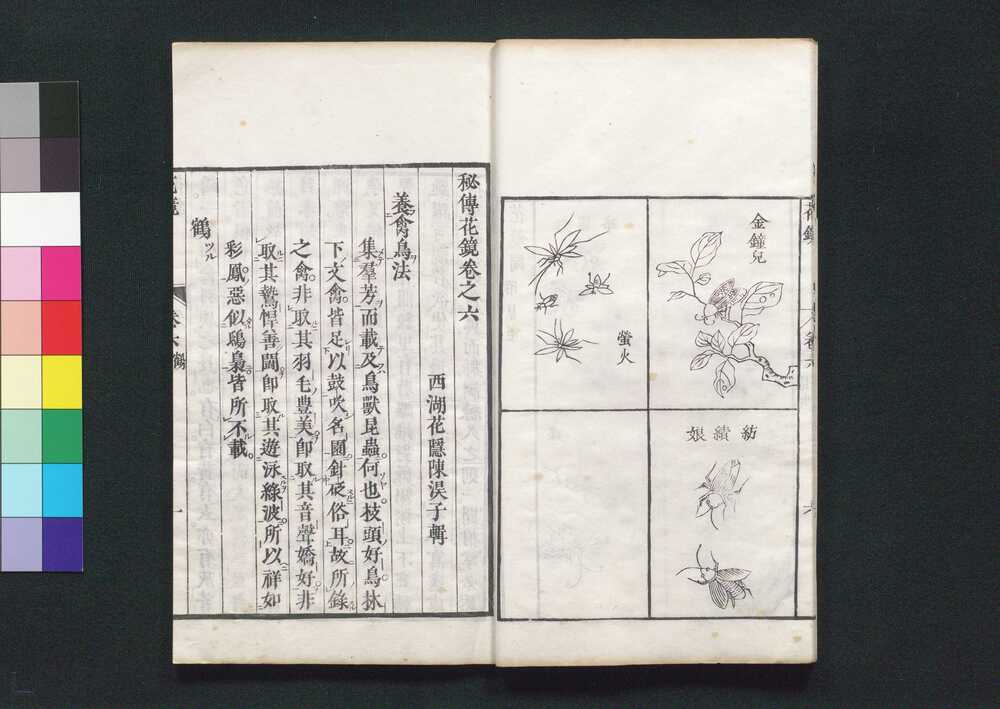 金鐘兒
螢火
紡績娘
秘傳花鏡卷之六
西湖花隱陳淏子輯
養禽鳥法
集羣芳而載及鳥獸昆蟲何也枝頭好鳥林
下文禽皆足以鼓吹名園針砭俗耳故所錄
之禽非取其羽毛豊美卽取其音聲嬌好非
取其鷙悍善鬪卽取其遊泳綠波所以祥如
彩鳳惡似鴟梟皆所不載
鶴ツル